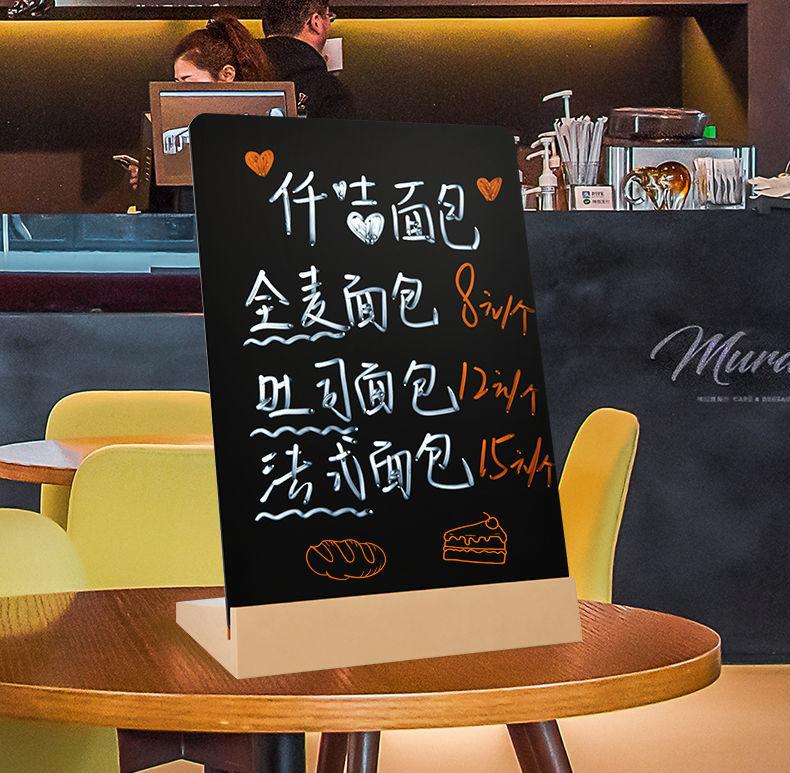 仟吉面包
全麦面包 8元/个
吐司面包 12元/个
法式面包 15元/个
Mura